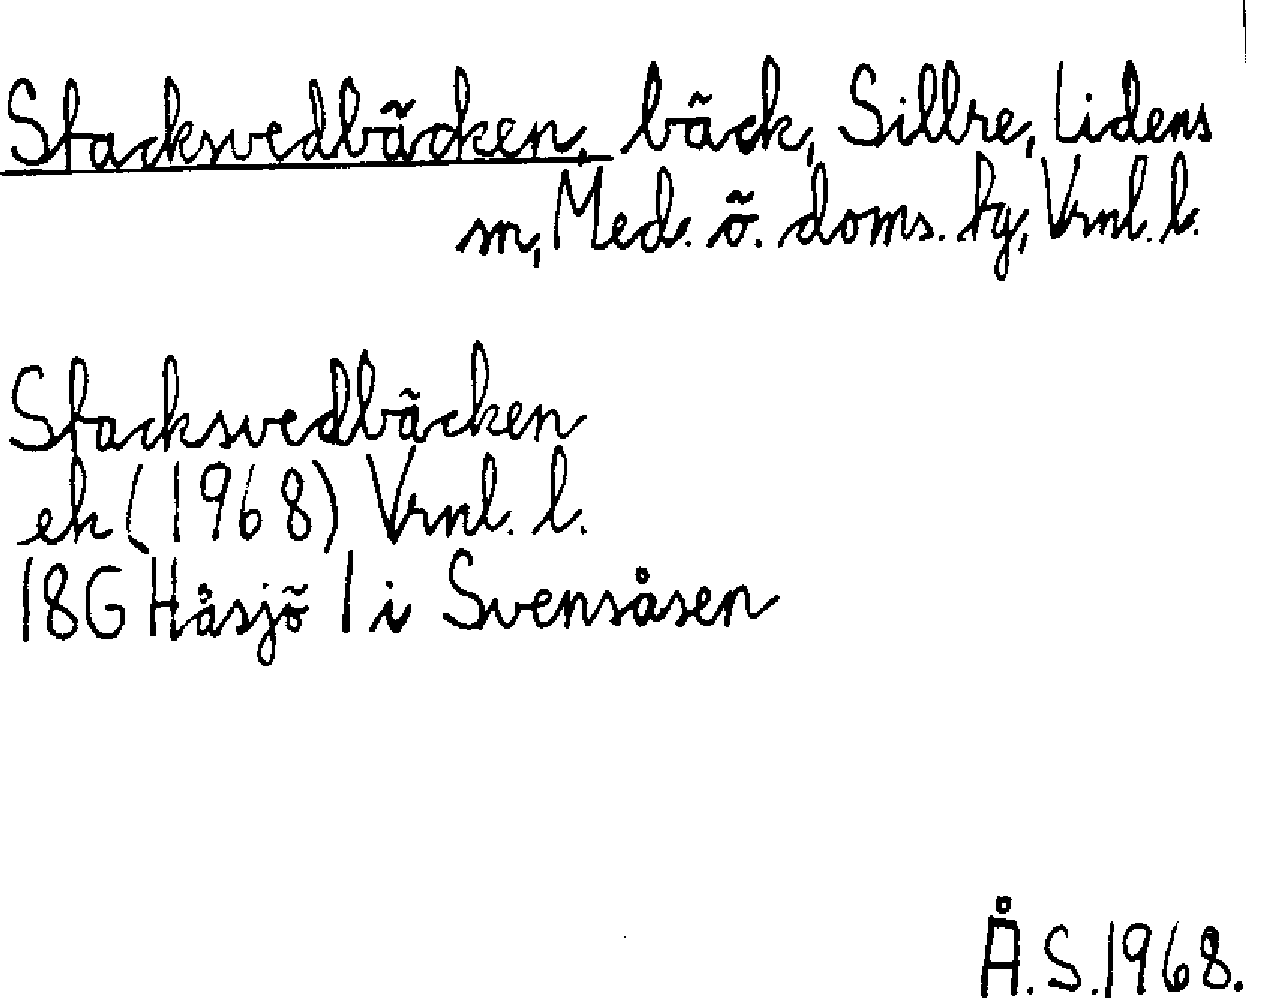 Stacksvedbäcken, bäck, Sillre, Lidens
sn, Med. ö. doms. tg, Vrnl. l.
Stacksvedbäcken
ek (1968) Vrnl. l.
18G Håsjö 1 i Svensåsen
Å.S.1968.